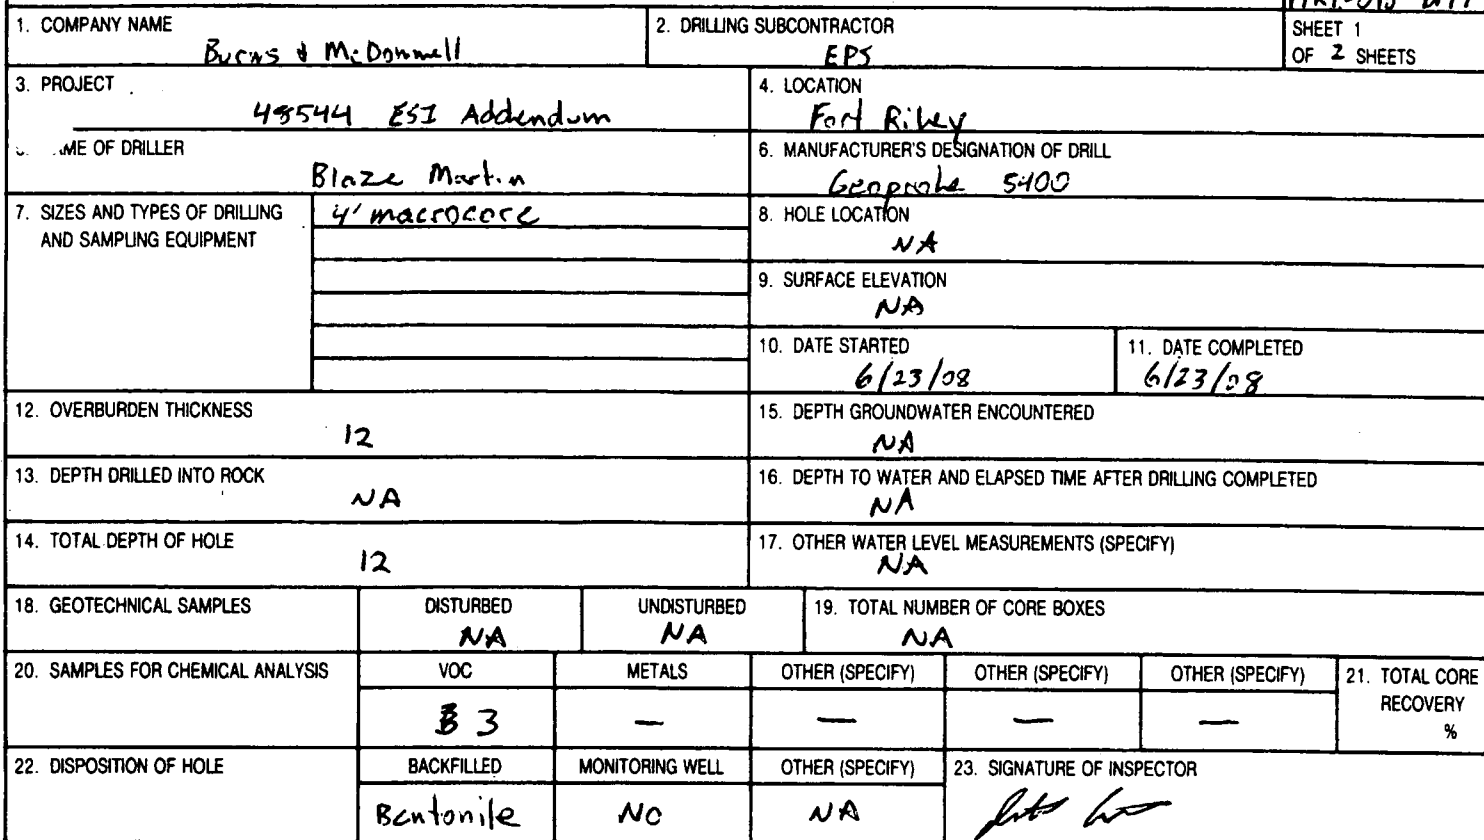 1. COMPANY NAME
Burns & McDonnell
2. DRILLING SUBCONTRACTOR
EPS
SHEET 1
OF 2 SHEETS
3. PROJECT
48544 ESI Addendum
4. LOCATION
Fort Riley
ME OF DRILLER
Blaze Martin
6. MANUFACTURER'S DESIGNATION OF DRILL
Geoprobe 5400
7. SIZES AND TYPES OF DRILLING
AND SAMPLING EQUIPMENT
4' macrocore
8. HOLE LOCATION
NA
9. SURFACE ELEVATION
NA
10. DATE STARTED
6/23/08
11. DATE COMPLETED
6/23/08
12. OVERBURDEN THICKNESS
12
15. DEPTH GROUNDWATER ENCOUNTERED
NA
13. DEPTH DRILLED INTO ROCK
NA
16. DEPTH TO WATER AND ELAPSED TIME AFTER DRILLING COMPLETED
NA
14. TOTAL DEPTH OF HOLE
12
17. OTHER WATER LEVEL MEASUREMENTS (SPECIFY)
NA
18. GEOTECHNICAL SAMPLES
DISTURBED
NA
UNDISTURBED
NA
19. TOTAL NUMBER OF CORE BOXES
NA
20. SAMPLES FOR CHEMICAL ANALYSIS
VOC
METALS
OTHER (SPECIFY)
OTHER (SPECIFY)
OTHER (SPECIFY)
21. TOTAL CORE
RECOVERY
%
3
—
—
—
—
22. DISPOSITION OF HOLE
BACKFILLED
MONITORING WELL
OTHER (SPECIFY)
23. SIGNATURE OF INSPECTOR
Bentonite
NO
NA